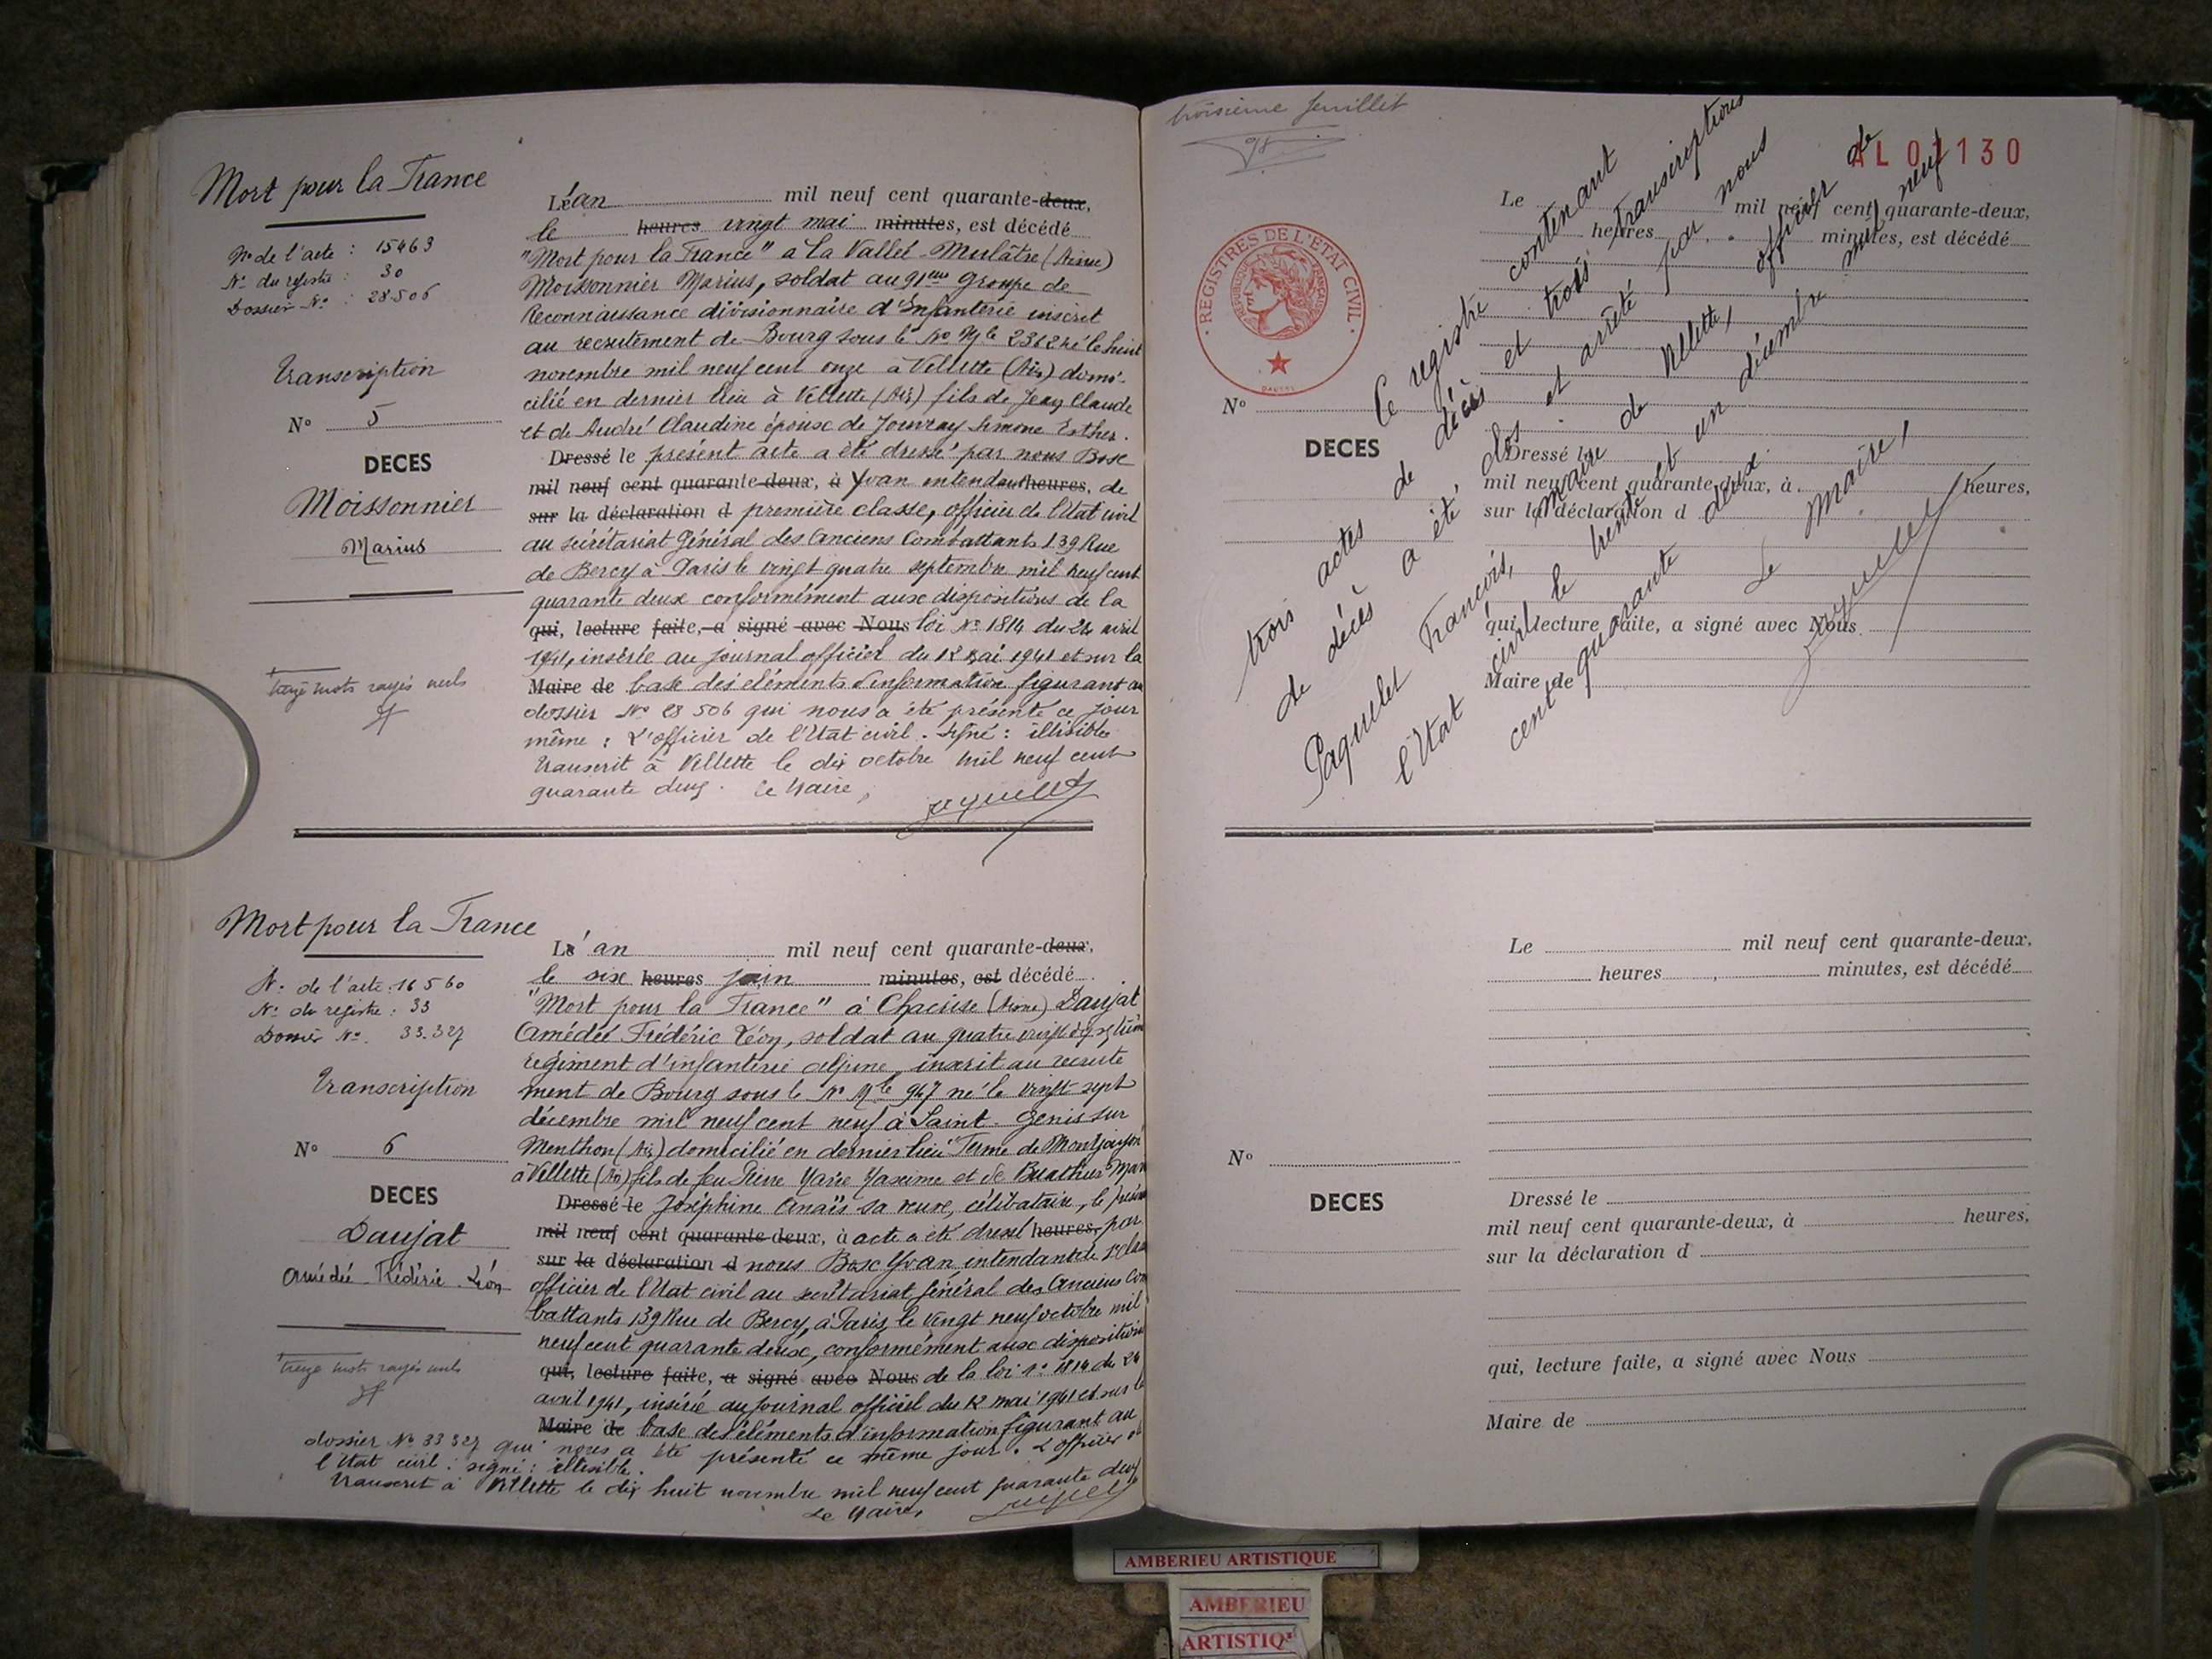 Mort pour la France
No de l'acte : 15463
No du registre : 30
Dossier No : 28.506
Transcription
No 5
DECES
Moissonnier
Marius
treize mots rayés nuls
L'an mil neuf cent quarante-deux,
le heures vingt mai minutes, est décédé
"Mort pour la France" a La Vallée-Mulâtre (Aisne)
Moissonnier Marius, soldat au 91eme Groupe de
Reconnaissance divisionnaire d'Infanterie inscrit
au recrutement de Bourg sous le No Mle 2362 né le huit
novembre mil neuf cent onze à Villette (Ain) domi-
cilié en dernier lieu à Villette (Ain) fils de Jean Claude
et de André Claudine épouse de Jouvray Simone Esther.
Dressé le présent acte a été dressé par nous Bosc
mil neuf cent quarante-deux, à Yvan intendant heures, de
sur la déclaration d première classe, officier de l'Etat civil
au secrétariat Général des Anciens Combattants 139 Rue
de Bercy à Paris le vingt quatre septembre mil neuf cent
quarante deux conformément aux dispositions de la
qui, lecture faite, a signé avec Nous loi No 1814 du 24 avril
1941, insérée au journal officiel du 12 mai 1941 et sur la
Maire de base des eléments d'information figurant au
dossier No 28 506 qui nous a été présenté ce jour
même : L'officier de l'Etat civil. Signé : illisible
Transcrit à Villette le dix octobre mil neuf cent
quarante deux. Le Maire,
Mort pour la France
No de l'acte : 16 560
No du registre : 33
Dossier No. 33.327
Transcription
No 6
DECES
Daujat
Amédée Frédéric Léon
treize mots rayés nuls
L'an mil neuf cent quarante-deux,
le six heures juin minutes, est décédé
"Mort pour la France" à Chacrise (Aisne) Daujat
Amédée Frédéric Léon, soldat au quatre vingt dix septième
régiment d'infanterie alpine, inscrit au recrute
ment de Bourg sous le No Mle 947 né le vingt sept
décembre mil neuf cent neuf à Saint-Genis sur
Menthon (Ain) domicilié en dernier lieu Ferme de
à Villette (Ain) fils de feu Pierre Marie Maxime et de
Dressé le Joséphine Anaïs sa veuve, célibataire, le
mil neuf cent quarante-deux, à acte a été dressé heures, par
sur la déclaration d nous Bosc Yvan, intendant de 1e
officier de l'Etat civil au secrétariat Général des Anciens Com
battants 139 Rue de Bercy, à Paris le vingt neuf octobre mil
neuf cent quarante deux, conformément aux dispositions
qui, lecture faite, a signé avec Nous de la loi No 1814 du 24
avril 1941, insérée au journal officiel du 12 mai 1941 et sur la
Maire de base des éléments d'information figurant au
dossier No 33 327 qui nous a été présenté ce même jour. L'officier de
l'Etat civil : signé : illisible.
Transcrit à Villette le dix huit novembre mil neuf cent quarante deux
Le Maire,
troisième feuillet
AL 01130
REGISTRES DE L'ETAT CIVIL
REPUBLIQUE FRANÇAISE
Le mil neuf cent quarante-deux,
heures, minutes, est décédé
No
DECES
Dressé le
mil neuf cent quarante-deux, à heures,
sur la déclaration d
qui, lecture faite, a signé avec Nous
Maire de
Ce registre contenant
trois actes de décès et trois transcriptions
de décès a été clos et arrêté par nous
Paquelet François, maire de Villette, officier de
l'Etat civil le trente et un décembre mil neuf
cent quarante deux.
Le Maire,
Le mil neuf cent quarante-deux,
heures, minutes, est décédé
No
DECES
Dressé le
mil neuf cent quarante-deux, à heures,
sur la déclaration d
qui, lecture faite, a signé avec Nous
Maire de
AMBERIEU ARTISTIQUE
AMBERIEU
ARTISTIQ